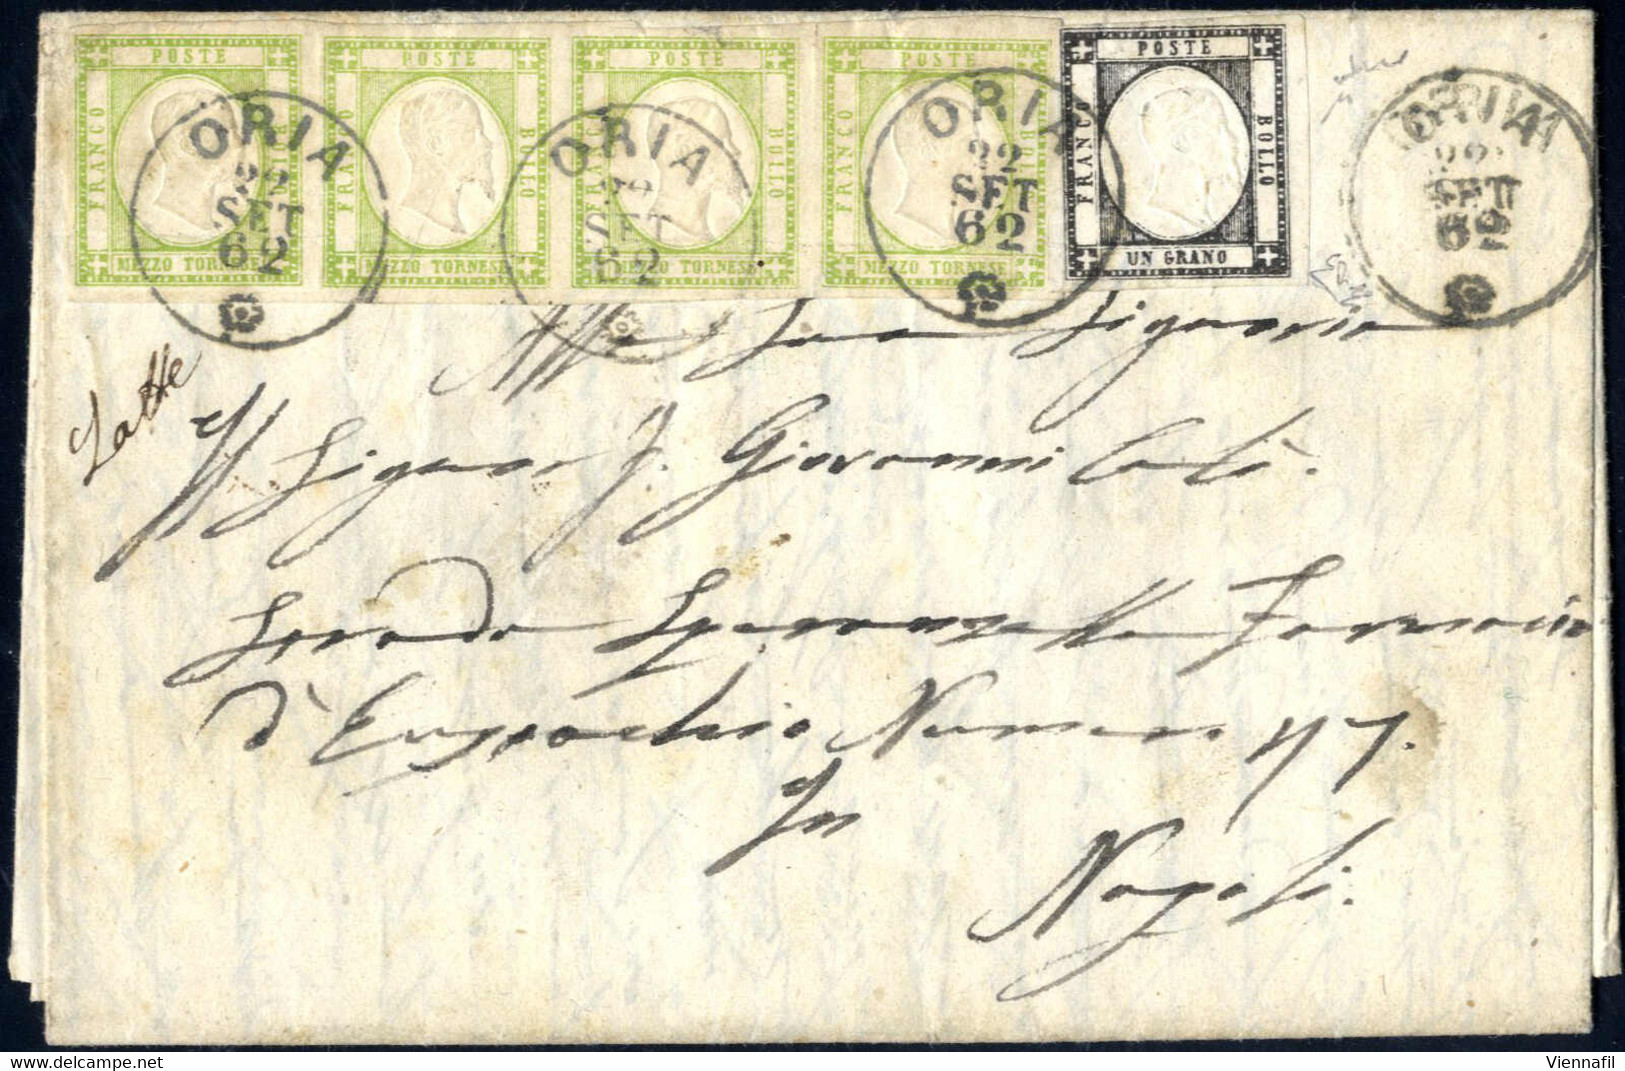 POSTE POSTE POSTE POSTE POSTE
FRANCO BOLLO FRANCO BOLLO FRANCO BOLLO FRANCO BOLLO FRANCO BOLLO
MEZZO TORNESE MEZZO TORNESE MEZZO TORNESE MEZZO TORNESE UN GRANO
ORIA 22 SET 62
ORIA 22 SET 62
ORIA 22 SET 62
ORIA 22 SET 62
Alla Sua Signoria
Il Signor D. Giovanni
Strada Speranzella Farmacia
d'Eustachio Numero 47.
In
Napoli.
Viennafil